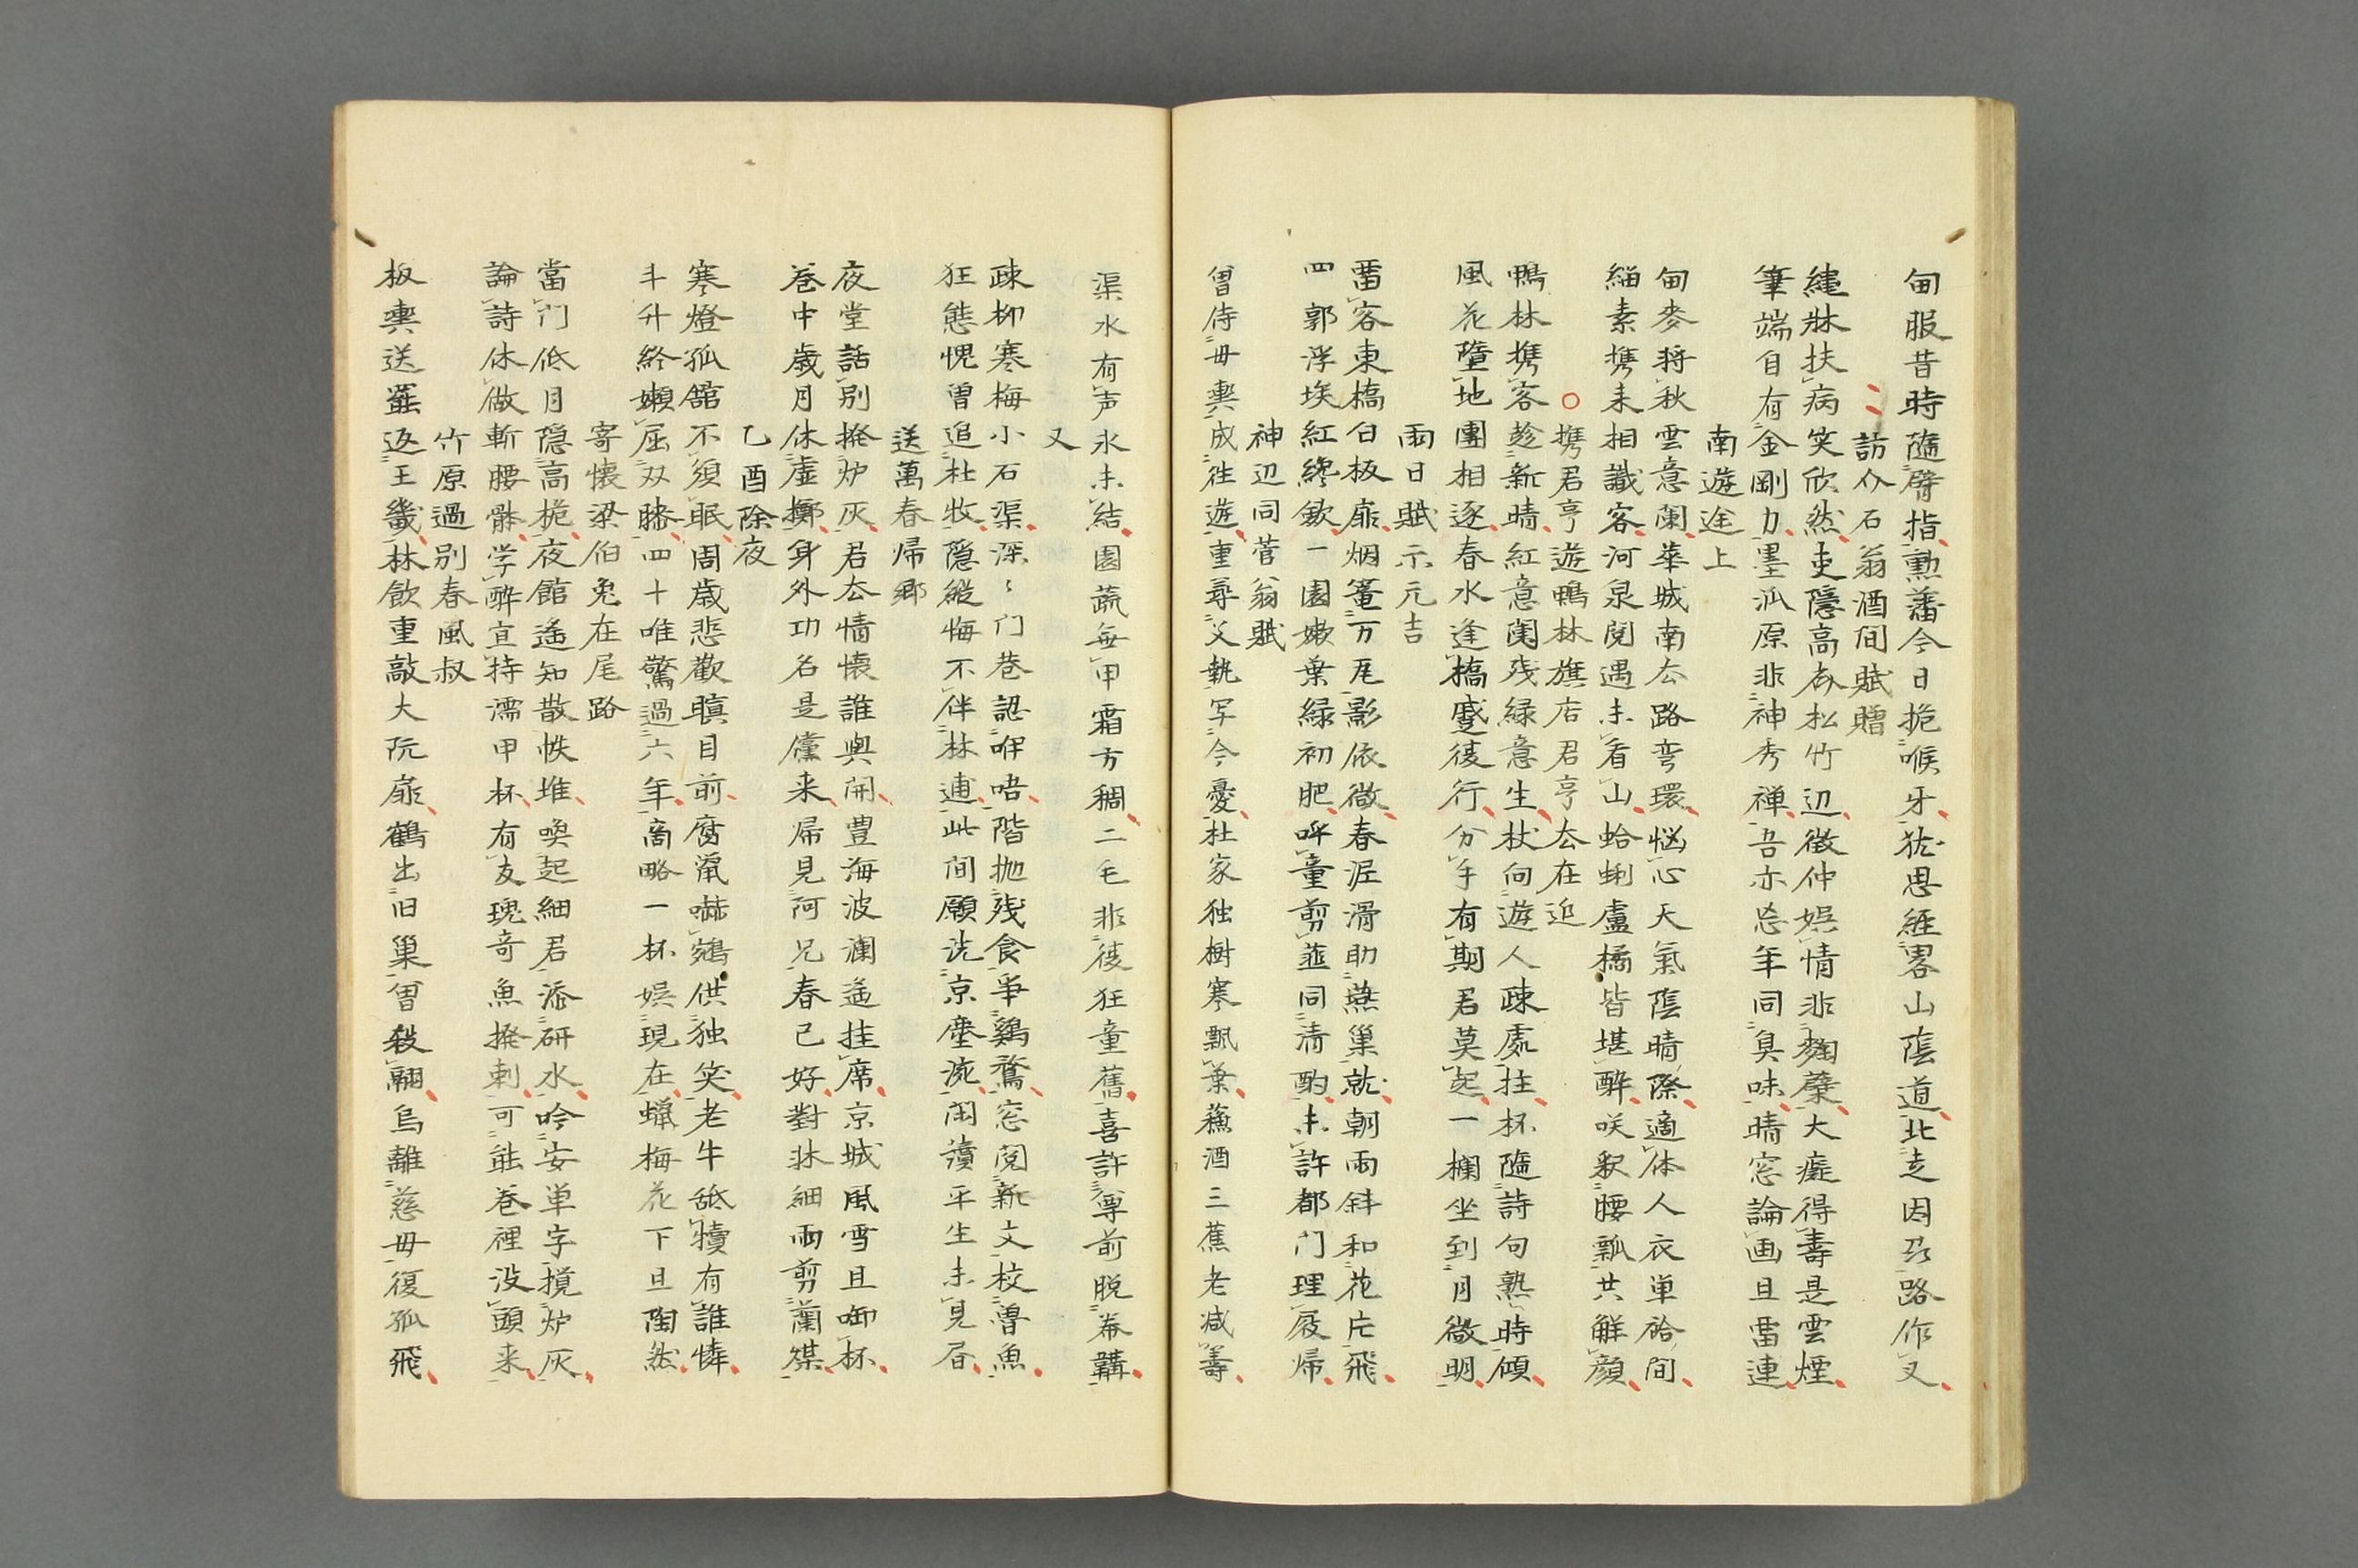 甸服昔時隨臂指勲藩今日扼喉牙犹思経畧山陰道北走因分路作叉
訪介石翁酒間賦贈
縄牀扶病笑欣然吏隠高森松竹辺徴仲娯情非麹蘖大癡得壽是雲煙
筆端自有金剛力墨沠原非神秀禅吾亦忘年同臭味晴窓論画且留連
南遊途上
甸麥将秋雲意闌華城南去路弯環悩心天氣陰晴際適体人衣単袷間
緇素携来相識客河泉閲遇未看山蛤蜊盧橘皆堪酔咲釈腰瓢共解顔
携君亨遊鴨林旗店君亨去在迩
鴨林携客趁新晴紅意闌残緑意生杖向遊人疎處拄杯隨詩句熟時傾
風花墮地團相逐春水逢橋蹙後行分手有期君莫起一欄坐到月微明
雨日賦示元吉
畱客東橋白板扉烟篭万瓦影依微春泥滑助燕巣就朝雨斜和花片飛
四郭浮埃紅纔歛一園嫩葉緑初肥呼童剪韮同清酌未許都门理屐帰
神辺同菅翁賦
曽侍母輿成往遊重尋父執写今憂杜家独樹寒飄葉蘓酒三蕉老减壽
渠水有声氷未結園蔬毎甲霜方稠二毛非後狂童舊喜許尊前脱帣韝
又
疎柳寒梅小石渠深〻门巷認咿唔階抛残食争鷄鶩窓閲新文校魯魚
狂態愧曽追杜牧隠縦悔不伴林逋此間願洗京塵流閑讀平生未見書
送萬春帰郷
夜堂話別撥炉灰君去情懐誰與開豊海波瀾遥挂席京城風雪且啣杯
巻中歳月休虚擲身外功名是儻来帰見阿兄春已好對牀細雨剪蘭煤
乙酉除夜
寒燈孤舘不須眠周歳悲歡瞋目前腐鼠嚇鵷供独笑老牛舐犢有誰憐
斗升終嬾屈双膝四十唯驚過六年商略一杯娯現在蝋梅花下且陶然
寄懐梁伯兎在尾路
當门低月隠高桅夜館遥知散帙堆喚起細君添研水吟安単字撹炉灰
論詩休倣斬腰骸学酔宜持濡甲杯有友瑰奇魚撥剌可能巻裡没頭来
竹原過別春風叔
板輿送罷返王畿林飲重敲大阮扉鶴出旧巣曽殺翮烏離慈母復孤飛